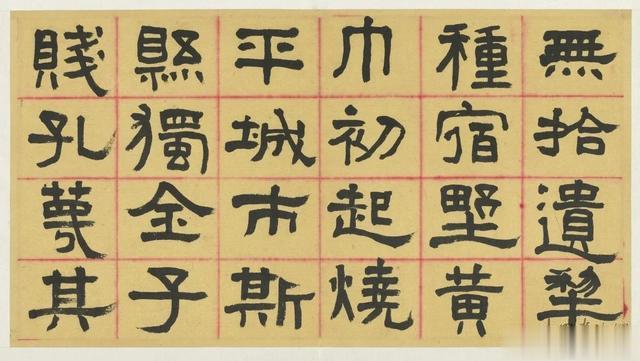 無拾遺犂
種宿墅黃
巾初起燒
平城市斯
縣獨全子
賤孔蔑其